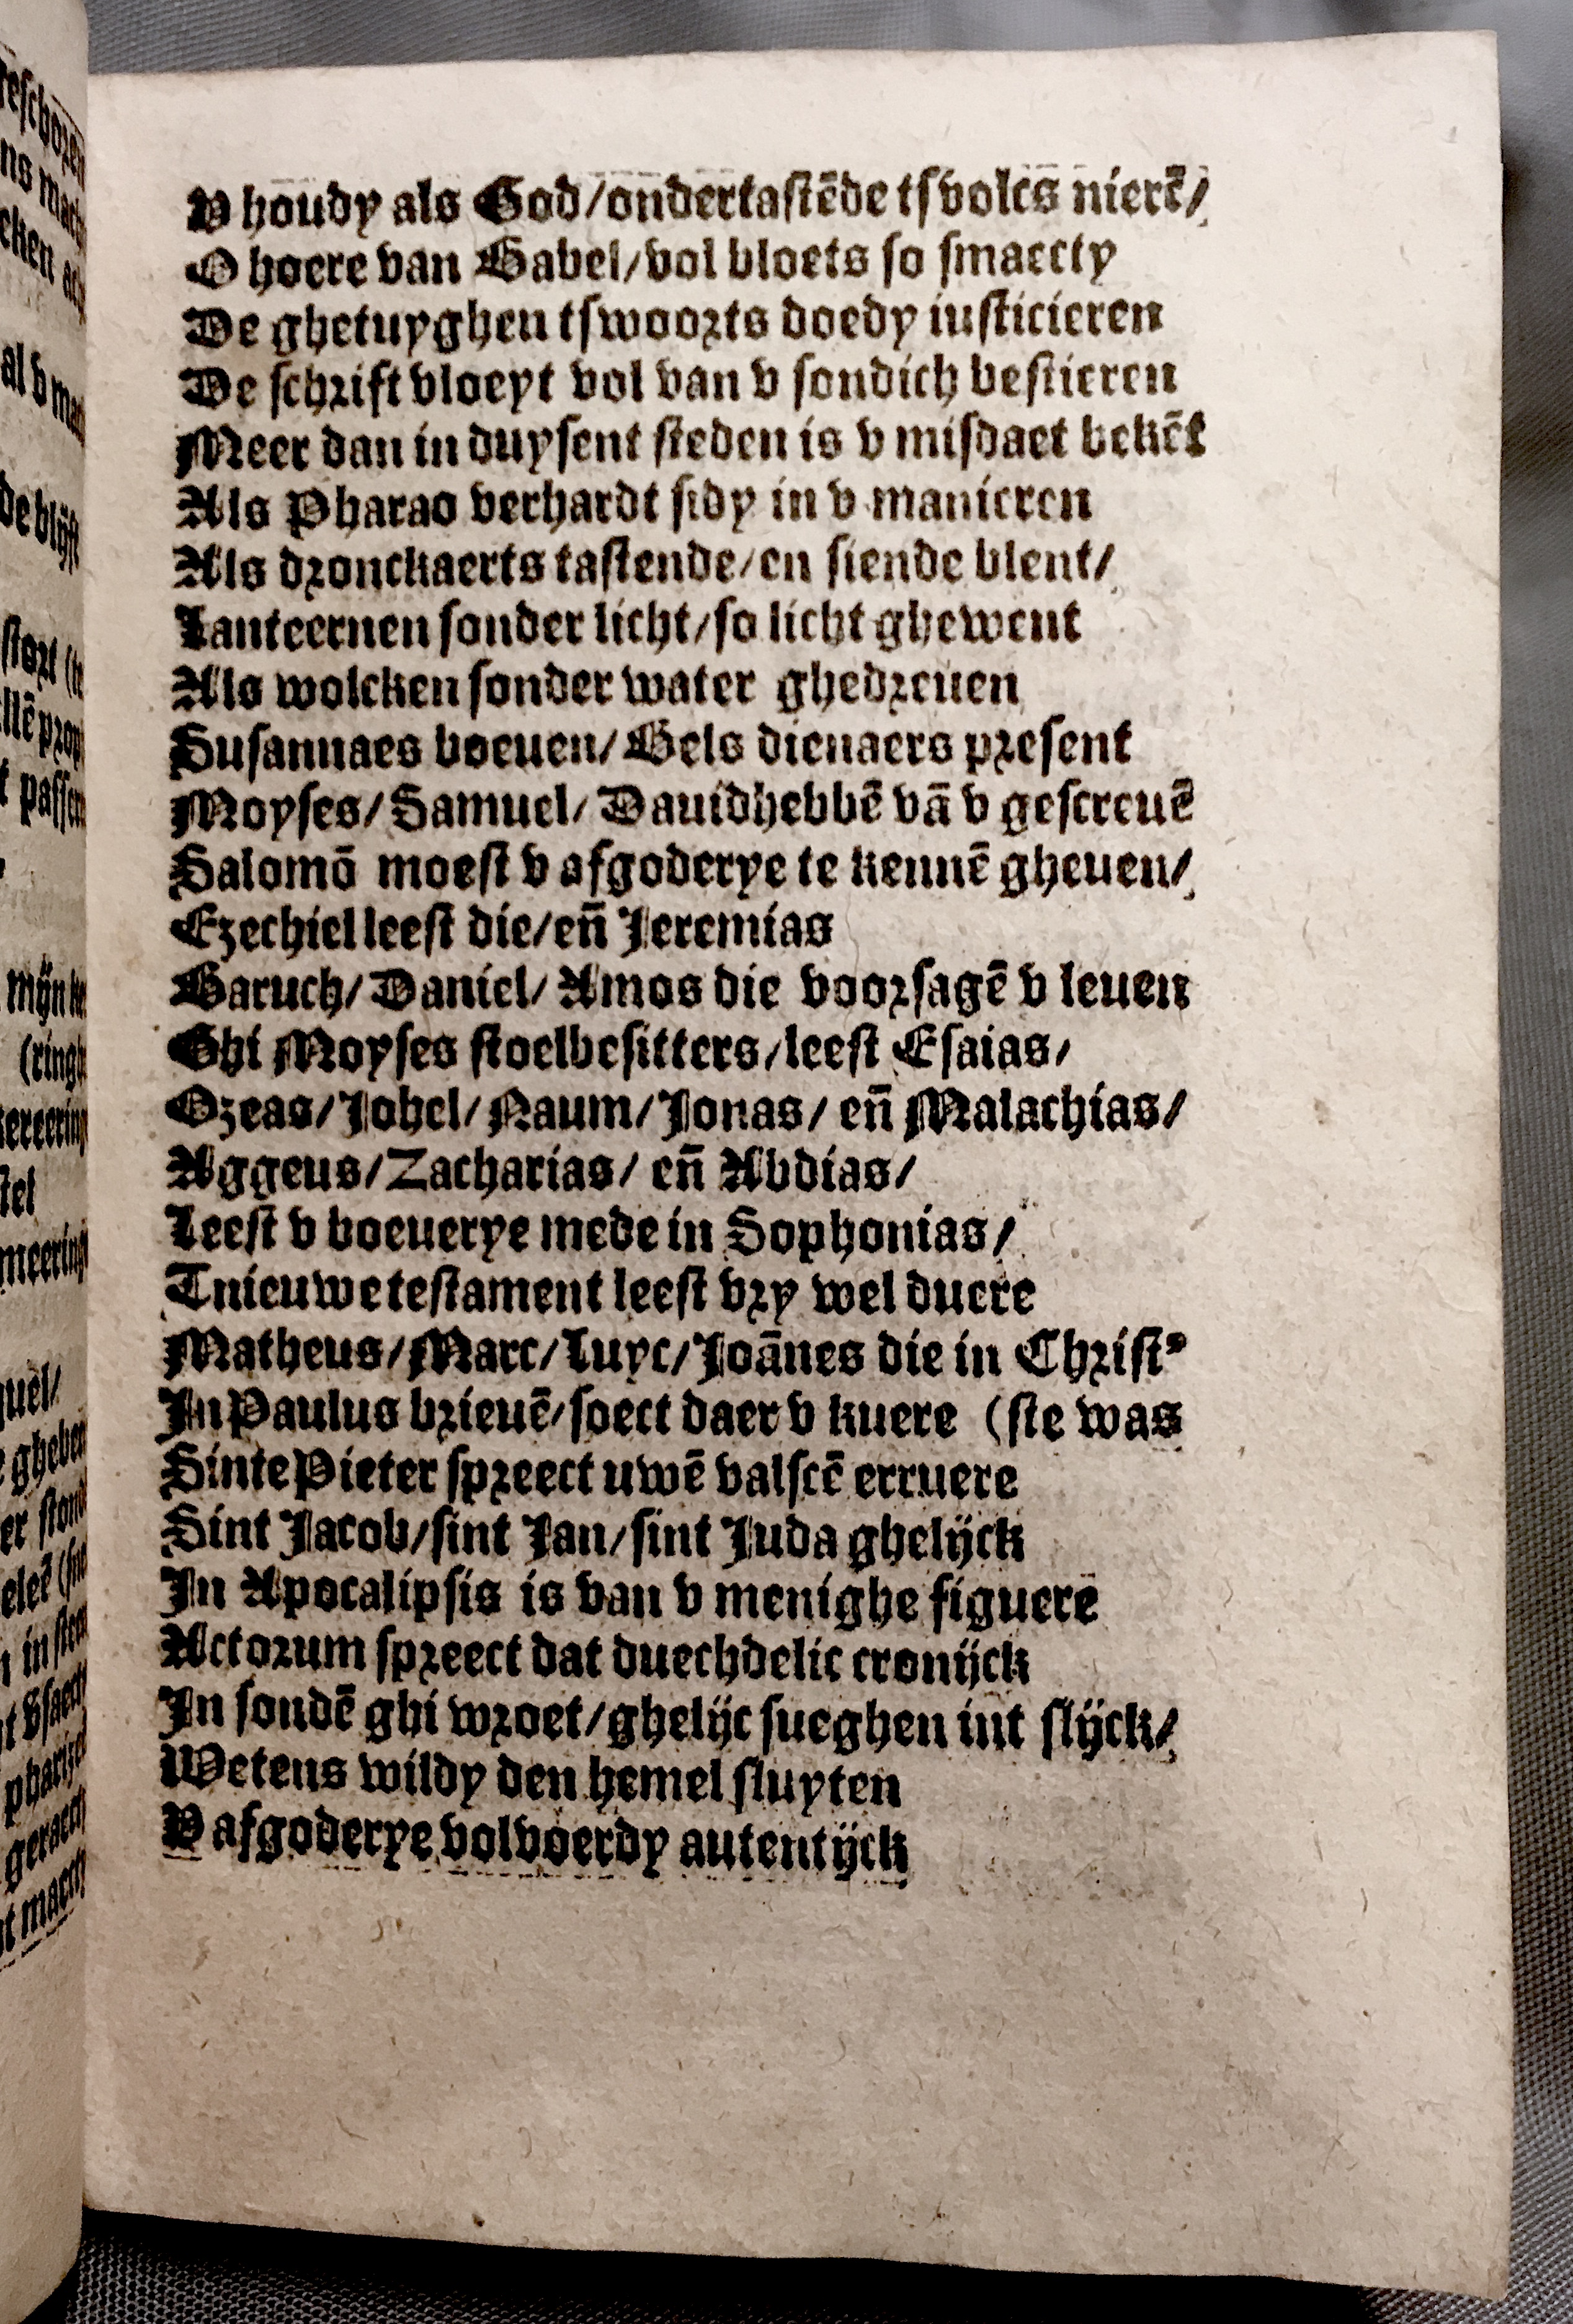 V houdy als God/ondertastēde tsvolcs nierē/
O hoere van Babel/vol bloets so smaecty
De ghetuyghen tswoorts doedy iusticieren
De schrift vloeyt vol van v sondich bestieren
Meer dan in duysent steden is v misdaet bekēt
Als Pharao verhardt sidy in v manieren
Als dronckaerts tastende/en siende blent/
Lanteernen sonder licht/so licht ghewent
Als wolcken sonder water ghedreuen
Susannaes boeuen/Bels dienaers present
Moyses/Samuel/Dauidhebbē vā v gescreuē
Salomō moest v afgoderye te kennē gheuen/
Ezechiel leest die/eñ Jeremias
Baruch/Daniel/Amos die voorsagē v leuen
Ghi Moyses stoelbesitters/leest Esaias/
Ozeas/Johel/Naum/Jonas/eñ Malachias/
Aggeus/Zacharias/eñ Abdias/
Leest v boeuerye mede in Sophonias/
Tnieuwe testament leest vry wel duere
Matheus/Marc/Luyc/Joānes die in Christ⸗
In Paulus brieuē/soect daer v kuere (ste was
Sinte Pieter spreect uwē valscē erruere
Sint Jacob/sint Jan/sint Juda ghelijck
In Apocalipsis is van v menighe figuere
Actorum spreect dat duechdelic cronijck
In sondē ghi wroet/ghelijc sueghen int slijck/
Wetens wildy den hemel sluyten
V afgoderye volvoerdy autentijck